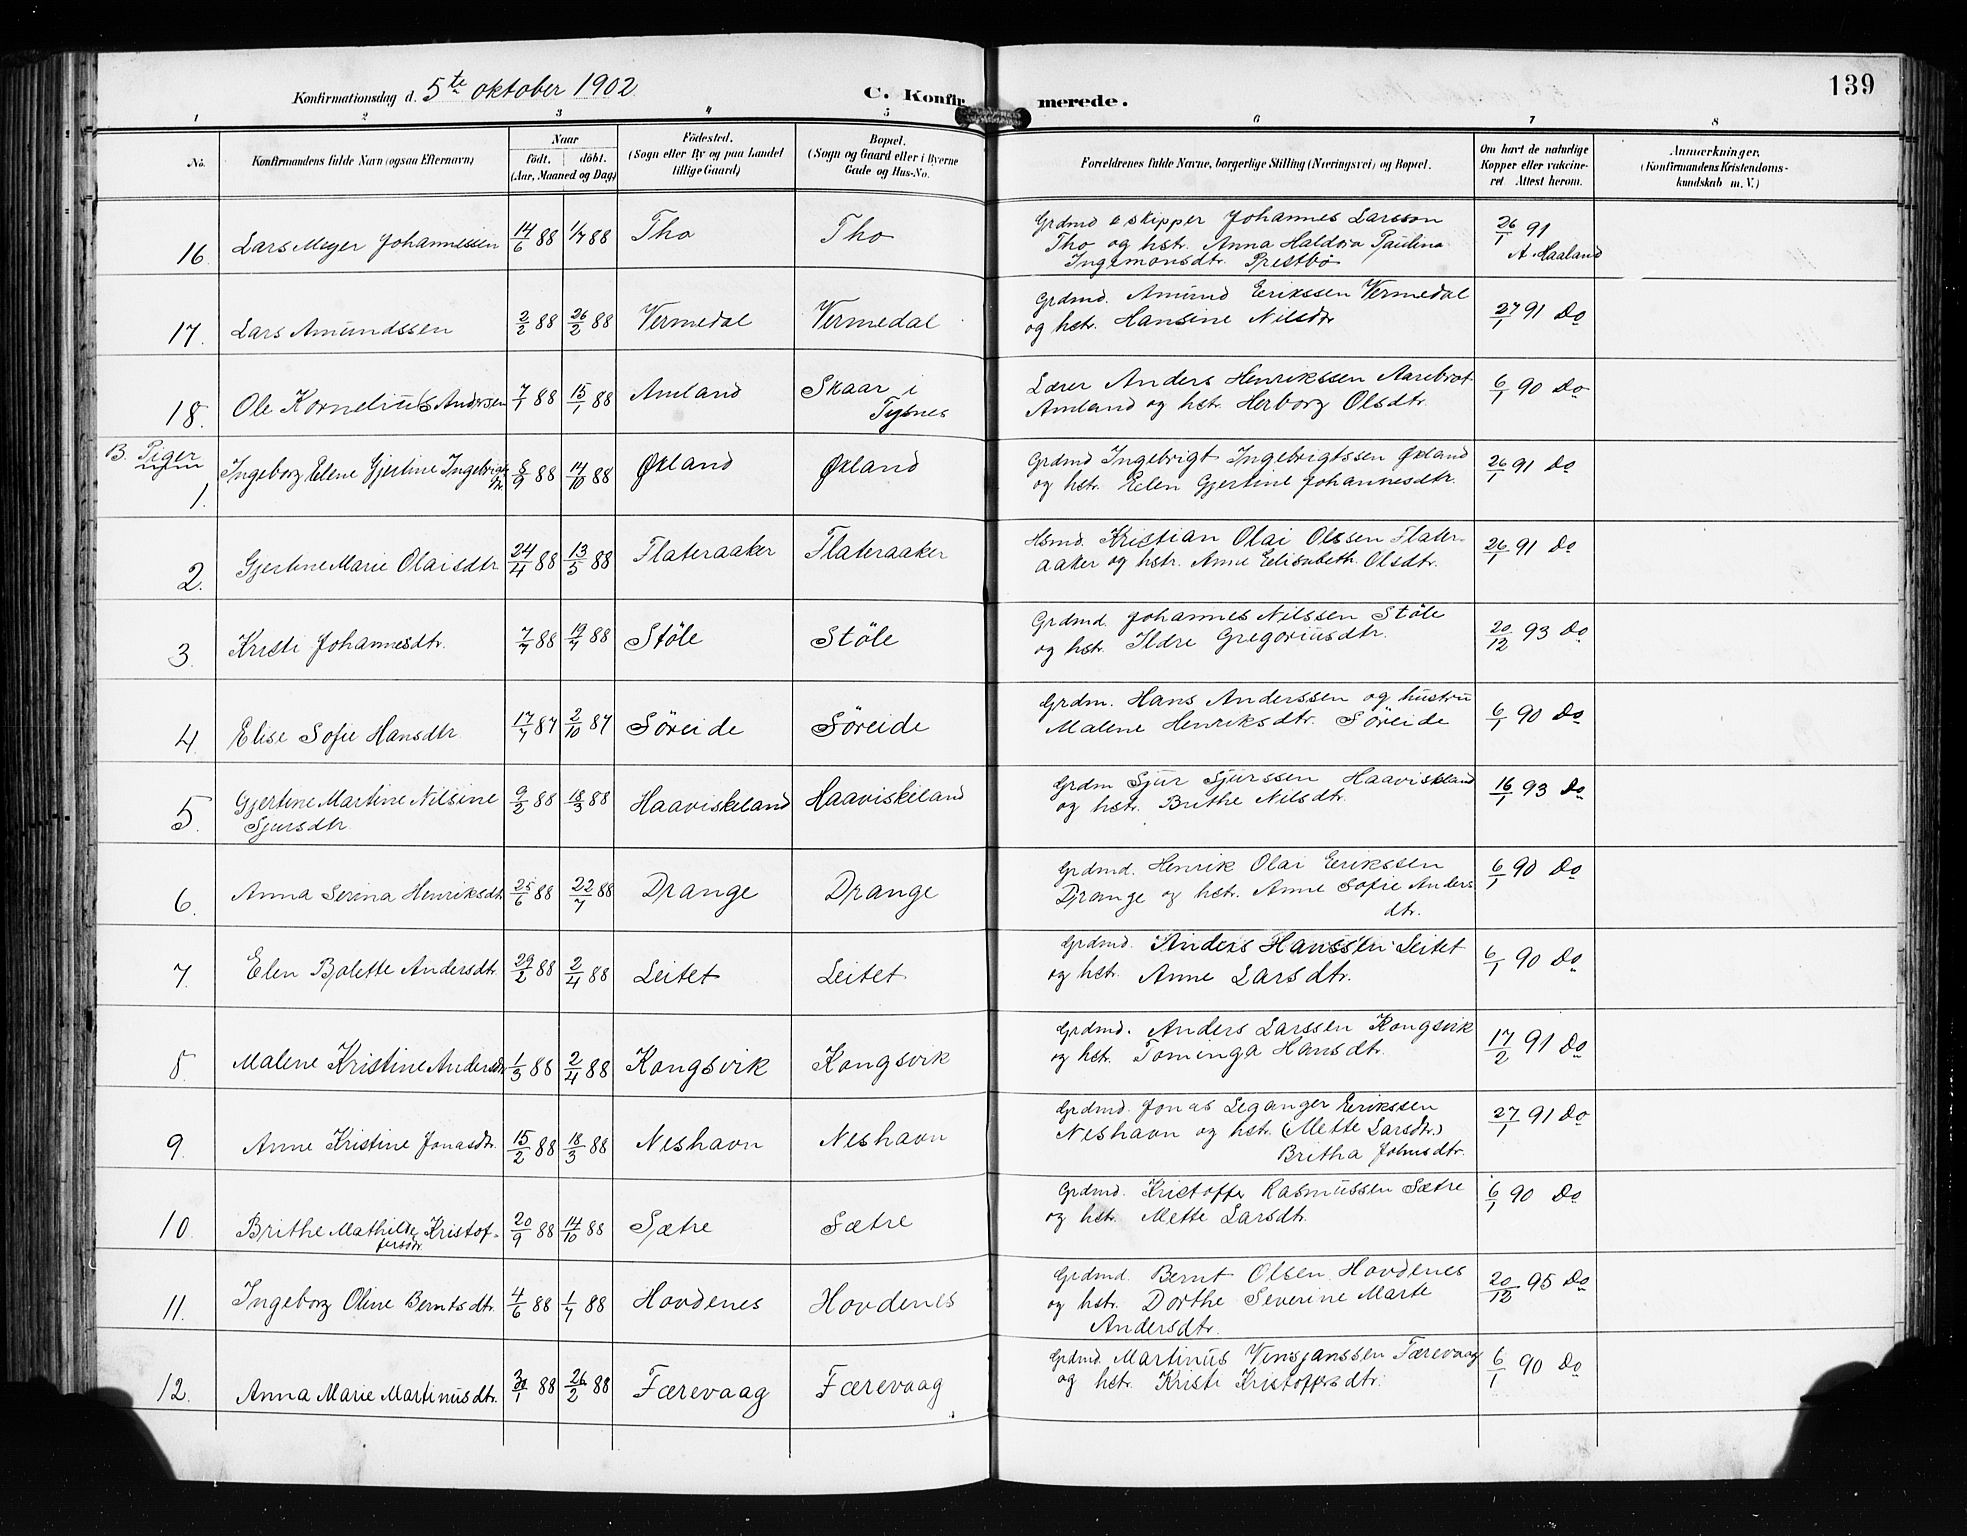 139
Konfirmationsdag d. 5te oktober 1902
C. Konfirmerede.
1 2 3 4 5 6 7 8
No.
Konfirmandens fulde Navn (ogsaa Efternavn)
Naar
født. døbt.
(Aar, Maaned og Dag)
Födested.
(Sogn eller By og paa Landet
tillige Gaard)
Bopæl.
(Sogn og Gaard eller i Byerne
Gade og Hus-No.
Forældrenes fulde Navne, borgerlige Stilling (Næringsvei) og Bopæl.
Om havt de naturlige
Kopper eller vakcine-
ret Attest herom.
Anmærkninger.
(Konfirmandens Kristendoms-
kundskab m. V.)
16. Lars Meyer Johannessen 14/6 88 1/7 88 Tho Tho
Grdmd & skipper Johannes Larsson
Tho og hstr. Anna Haldora Paulina
Ingemonsdtr. Prestbø
26/1 91
A. Haaland
17. Lars Amundssen 2/2 88 26/2 88 Vermedal Vermedal
Grdmd. Amund Erikssen Vermedal
og hstr. Hansine Nilsdtr
27/1 91 Do
18. Ole Kornelius Andersen 7/1 88 15/1 88 Amland Skaar i
Tysnes
Lærer Anders Henrikssen Aarebrot
Amland og hstr. Herborg Olsdtr.
6/1 90 Do
B. Piger
1. Ingeborg Elene Gjertine Ingebrigts
dtr. 8/9 88 14/10 88 Økland Økland
Grdmd Ingebrigt Ingebrigtssen Økland
og hstr. Elen Gjertine Johannesdtr.
26/1 91 Do
2. Gjertine Marie Olaisdtr 24/4 88 13/5 88 Flateraaker Flateraaker
Hsmd. Kristian Olai Olssen Flater-
aaker og hstr. Anne Elisabeth Olsdtr.
26/1 91 Do
3. Kristi Johannesdtr. 7/7 88 19/7 88 Støle Støle
Grdmd. Johannes Nilssen Støle
og hstr. Ildre Gregoriusdtr.
20/12 93 Do
4. Elise Sofie Hansdtr. 17/7 87 2/10 87 Søreide Søreide
Grdm. Hans Anderssen og hustru
Malene Henriksdtr. Søreide
6/1 90 Do
5. Gjertine Martine Nilsine
Sjursdtr 9/2 88 18/3 88 Haaviskeland Haaviskeland
Grdm Sjur Sjurssen Haaviskeland
og hstr. Brithe Nilsdtr.
16/1 93 Do
6. Anna Serina Henriksdtr 25/6 88 22/7 88 Drange Drange
Grdmd. Henrik Olai Erikssen
Drange og hstr. Anne Sofie Anders
dtr.
6/1 90 Do
7. Elen Bolette Andersdtr. 29/2 88 2/4 88 Leitet Leitet
Grdmd. Anders Hanssen Leitet
og hstr. Anne Larsdtr.
6/1 90 Do
8. Malene Kristine Andersdtr 1/3 88 2/4 88 Kongsvik Kongsvik
Grdmd. Anders Larssen Kongsvik
og hstr. Tominga Hansdtr.
17/2 91 Do
9. Anne Kristine Jonasdtr. 15/2 88 18/3 88 Neshavn Neshavn
Grdmd. Jonas Leganger Erikssen
Neshavn og hstr. (Mette Larsdtr.)
Britha Johnsdtr.
27/1 91 Do
10. Brithe Mathilde Kristof-
fersdtr 20/9 88 14/10 88 Sætre Sætre
Grdmd. Kristoffer Rasmussen Sætre
og hstr. Mette Larsdtr.
6/1 90 Do
11. Ingeborg Oline Berntsdtr. 4/6 88 1/7 88 Hovdenes Hovdenes
Grdmd. Bernt Olsen Hovdenes
og hstr. Dorthe Severine Marie
Andersdtr.
20/12 95 Do
12. Anna Marie Martinusdtr. 30/1 88 26/2 88 Færevaag Færevaag
Grdmd. Martinus Vinsjanssen Færevaag
og hstr. Kristi Kristoffersdtr.
6/1 90 Do